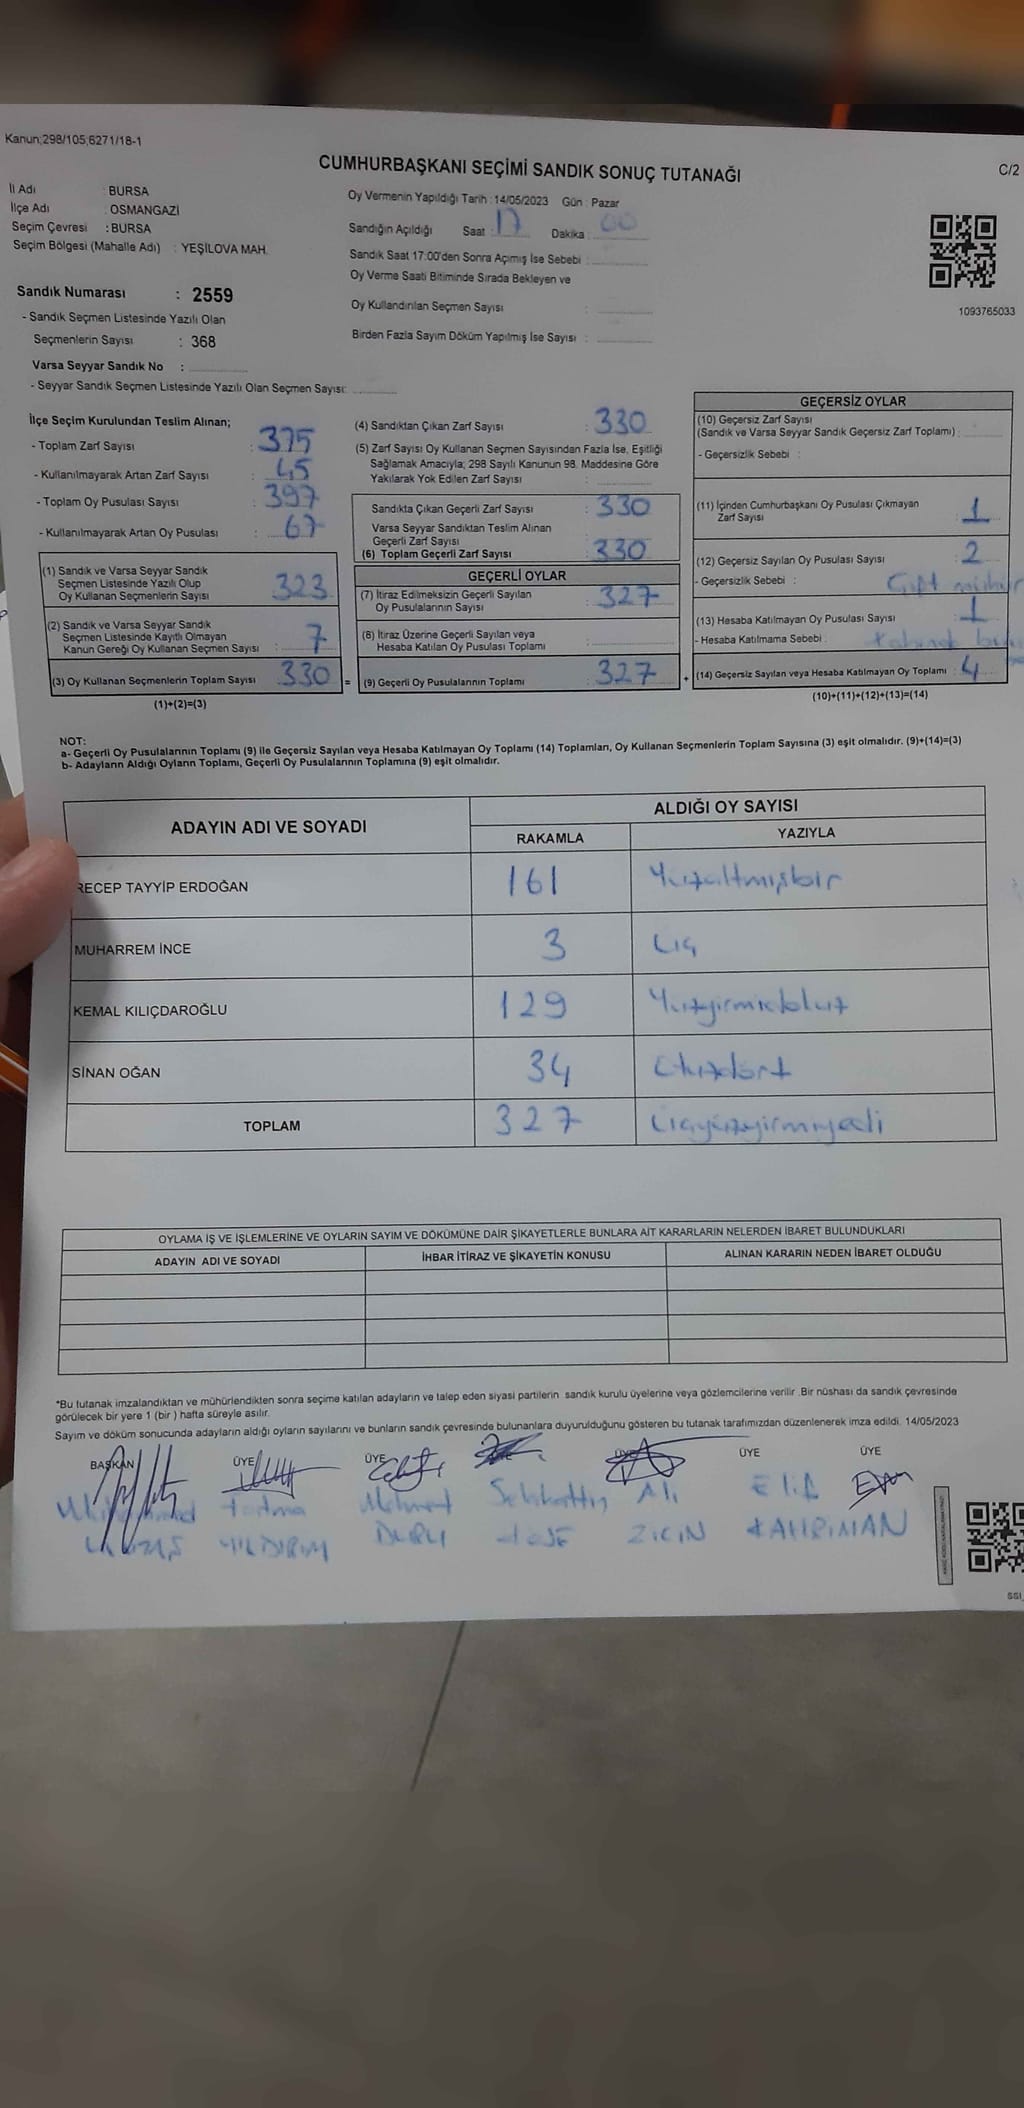 Kanun;298/105;6271/18-1
CUMHURBAŞKANI SEÇİMİ SANDIK SONUÇ TUTANAĞI
C/2
İl Adı : BURSA
İlçe Adı : OSMANGAZİ
Seçim Çevresi : BURSA
Seçim Bölgesi (Mahalle Adı) : YEŞİLOVA MAH.
Oy Vermenin Yapıldığı Tarih : 14/05/2023 Gün : Pazar
Sandığın Açıldığı Saat : 17 Dakika : 00
Sandık Saat 17:00'den Sonra Açımış İse Sebebi :
Oy Verme Saati Bitiminde Sırada Bekleyen ve
Oy Kullandırılan Seçmen Sayısı :
Birden Fazla Sayım Döküm Yapılmış İse Sayısı :
1093765033
Sandık Numarası : 2559
- Sandık Seçmen Listesinde Yazılı Olan
Seçmenlerin Sayısı : 368
Varsa Seyyar Sandık No :
- Seyyar Sandık Seçmen Listesinde Yazılı Olan Seçmen Sayısı:
İlçe Seçim Kurulundan Teslim Alınan;
- Toplam Zarf Sayısı : 375
- Kullanılmayarak Artan Zarf Sayısı : 45
- Toplam Oy Pusulası Sayısı : 397
- Kullanılmayarak Artan Oy Pusulası : 67
(1) Sandık ve Varsa Seyyar Sandık
Seçmen Listesinde Yazılı Olup
Oy Kullanan Seçmenlerin Sayısı 323
(2) Sandık ve Varsa Seyyar Sandık
Seçmen Listesinde Kayıtlı Olmayan
Kanun Gereği Oy Kullanan Seçmen Sayısı : 7
(3) Oy Kullanan Seçmenlerin Toplam Sayısı 330
(1)+(2)=(3)
(4) Sandıktan Çıkan Zarf Sayısı : 330
(5) Zarf Sayısı Oy Kullanan Seçmen Sayısından Fazla İse, Eşitliği
Sağlamak Amacıyla; 298 Sayılı Kanunun 98. Maddesine Göre
Yakılarak Yok Edilen Zarf Sayısı :
Sandıkta Çıkan Geçerli Zarf Sayısı : 330
Varsa Seyyar Sandıktan Teslim Alınan
Geçerli Zarf Sayısı :
(6) Toplam Geçerli Zarf Sayısı : 330
GEÇERLİ OYLAR
(7) İtiraz Edilmeksizin Geçerli Sayılan
Oy Pusulalarının Sayısı : 327
(8) İtiraz Üzerine Geçerli Sayılan veya
Hesaba Katılan Oy Pusulası Toplamı :
= (9) Geçerli Oy Pusulalarının Toplamı : 327
GEÇERSİZ OYLAR
(10) Geçersiz Zarf Sayısı
(Sandık ve Varsa Seyyar Sandık Geçersiz Zarf Toplamı) :
- Geçersizlik Sebebi :
(11) İçinden Cumhurbaşkanı Oy Pusulası Çıkmayan
Zarf Sayısı : 1
(12) Geçersiz Sayılan Oy Pusulası Sayısı : 2
- Geçersizlik Sebebi : Çift mühür
(13) Hesaba Katılmayan Oy Pusulası Sayısı : 1
- Hesaba Katılmama Sebebi :
+ (14) Geçersiz Sayılan veya Hesaba Katılmayan Oy Toplamı : 4
(10)+(11)+(12)+(13)=(14)
NOT:
a- Geçerli Oy Pusulalarının Toplamı (9) ile Geçersiz Sayılan veya Hesaba Katılmayan Oy Toplamı (14) Toplamları, Oy Kullanan Seçmenlerin Toplam Sayısına (3) eşit olmalıdır. (9)+(14)=(3)
b- Adayların Aldığı Oyların Toplamı, Geçerli Oy Pusulalarının Toplamına (9) eşit olmalıdır.
ADAYIN ADI VE SOYADI
ALDIĞI OY SAYISI
RAKAMLA
YAZIYLA
RECEP TAYYİP ERDOĞAN 161 Yüzaltmışbir
MUHARREM İNCE 3 Üç
KEMAL KILIÇDAROĞLU 129 Yüzyirmidokuz
SİNAN OĞAN 34 Otuzdört
TOPLAM 327 Üçyüzyirmiyedi
OYLAMA İŞ VE İŞLEMLERİNE VE OYLARIN SAYIM VE DÖKÜMÜNE DAİR ŞİKAYETLERLE BUNLARA AİT KARARLARIN NELERDEN İBARET BULUNDUKLARI
ADAYIN ADI VE SOYADI
İHBAR İTİRAZ VE ŞİKAYETİN KONUSU
ALINAN KARARIN NEDEN İBARET OLDUĞU
*Bu tutanak imzalandıktan ve mühürlendikten sonra seçime katılan adayların ve talep eden siyasi partilerin sandık kurulu üyelerine veya gözlemcilerine verilir .Bir nüshası da sandık çevresinde
görülecek bir yere 1 (bir ) hafta süreyle asılır.
Sayım ve döküm sonucunda adayların aldığı oyların sayılarını ve bunların sandık çevresinde bulunanlara duyurulduğunu gösteren bu tutanak tarafımızdan düzenlenerek imza edildi. 14/05/2023
BAŞKAN ÜYE ÜYE ÜYE ÜYE ÜYE
Fatma Mehmet Selahattin Ali Elif
YILDIRIM KAHRIMAN